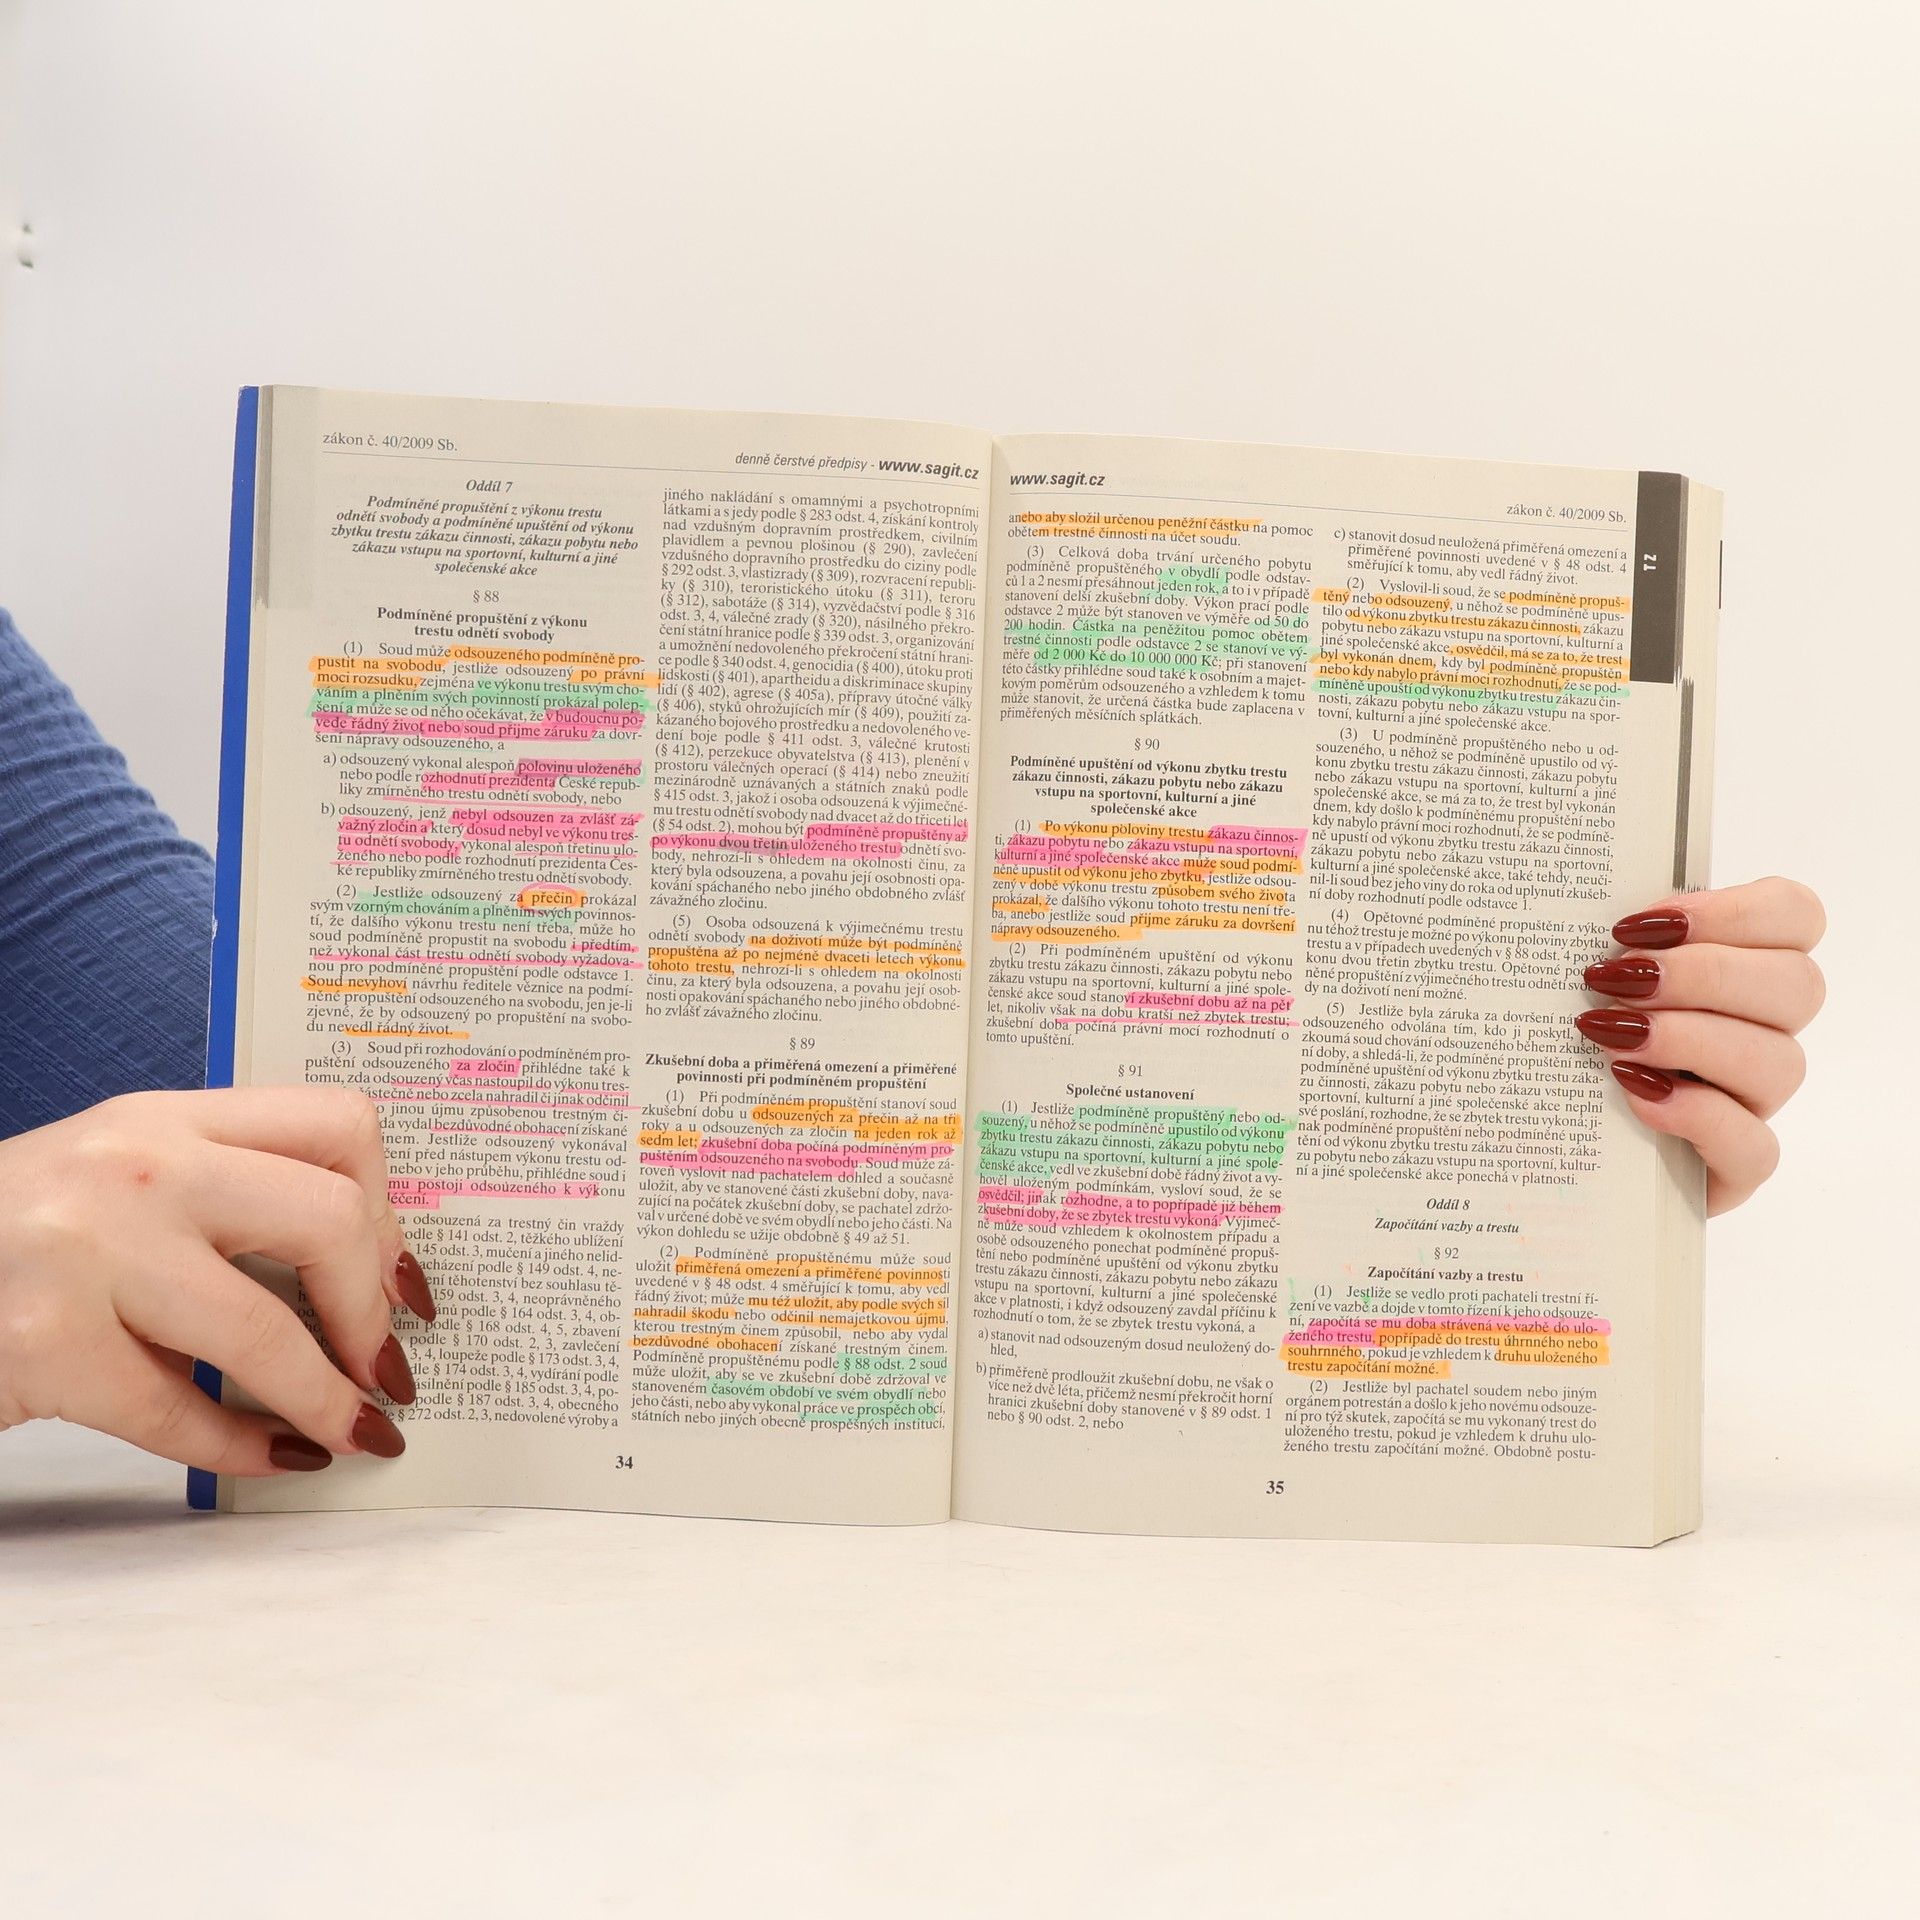 zákon č. 40/2009 Sb.
denně čerstvé předpisy - www.sagit.cz
Oddíl 7
Podmíněné propuštění z výkonu trestu
odnětí svobody a podmíněné upuštění od výkonu
zbytku trestu zákazu činnosti, zákazu pobytu nebo
zákazu vstupu na sportovní, kulturní a jiné
společenské akce
§ 88
Podmíněné propuštění z výkonu
trestu odnětí svobody
(1) Soud může odsouzeného podmíněně pro-
pustit na svobodu, jestliže odsouzený po právní
moci rozsudku, zejména ve výkonu trestu svým cho-
váním a plněním svých povinností prokázal polep-
šení a může se od něho očekávat, že v budoucnu po-
vede řádný život nebo soud přijme záruku za dovr-
šení nápravy odsouzeného, a
a) odsouzený vykonal alespoň polovinu uloženého
nebo podle rozhodnutí prezidenta České repub-
liky zmírněného trestu odnětí svobody, nebo
b) odsouzený, jenž nebyl odsouzen za zvlášť zá-
važný zločin a který dosud nebyl ve výkonu tres-
tu odnětí svobody, vykonal alespoň třetinu ulo-
ženého nebo podle rozhodnutí prezidenta Čes-
ké republiky zmírněného trestu odnětí svobody.
(2) Jestliže odsouzený za přečin prokázal
svým vzorným chováním a plněním svých povinnos-
tí, že dalšího výkonu trestu není třeba, může ho
soud podmíněně propustit na svobodu i předtím,
než vykonal část trestu odnětí svobody vyžadova-
nou pro podmíněné propuštění podle odstavce 1.
Soud nevyhoví návrhu ředitele věznice na podmí-
něné propuštění odsouzeného na svobodu, jen je-li
zjevné, že by odsouzený po propuštění na svobo-
du nevedl řádný život.
(3) Soud při rozhodování o podmíněném pro-
puštění odsouzeného za zločin přihlédne také k
tomu, zda odsouzený včas nastoupil do výkonu tres-
ástečně nebo zcela nahradil či jinak odčinil
o jinou újmu způsobenou trestným či-
da vydal bezdůvodné obohacení získané
inem. Jestliže odsouzený vykonával
čení před nástupem výkonu trestu od-
nebo v jeho průběhu, přihlédne soud i
mu postoji odsouzeného k výkonu
léčení.
a odsouzená za trestný čin vraždy
odle § 141 odst. 2, těžkého ublížení
145 odst. 3, mučení a jiného nelid-
acházení podle § 149 odst. 4, ne-
ení těhotenství bez souhlasu tě-
159 odst. 3, 4, neoprávněného
ánů podle § 164 odst. 3, 4, ob-
dmi podle § 168 odst. 4, 5, zbavení
podle § 170 odst. 2, 3, zavlečení
3, 4, loupeže podle § 173 odst. 3, 4,
dle § 174 odst. 3, 4, vydírání podle
ásilnění podle § 185 odst. 3, 4, po-
podle § 187 odst. 3, 4, obecného
§ 272 odst. 2, 3, nedovolené výroby a
jiného nakládání s omamnými a psychotropními
látkami a s jedy podle § 283 odst. 4, získání kontroly
nad vzdušným dopravním prostředkem, civilním
plavidlem a pevnou plošinou (§ 290), zavlečení
vzdušného dopravního prostředku do ciziny podle
§ 292 odst. 3, vlastizrady (§ 309), rozvracení republi-
ky (§ 310), teroristického útoku (§ 311), teroru
(§ 312), sabotáže (§ 314), vyzvědačství podle § 316
odst. 3, 4, válečné zrady (§ 320), násilného překro-
čení státní hranice podle § 339 odst. 3, organizování
a umožnění nedovoleného překročení státní hrani-
ce podle § 340 odst. 4, genocidia (§ 400), útoku proti
lidskosti (§ 401), apartheidu a diskriminace skupiny
lidí (§ 402), agrese (§ 405a), přípravy útočné války
(§ 406), styků ohrožujících mír (§ 409), použití za-
kázaného bojového prostředku a nedovoleného ve-
dení boje podle § 411 odst. 3, válečné krutosti
(§ 412), perzekuce obyvatelstva (§ 413), plenění v
prostoru válečných operací (§ 414) nebo zneužití
mezinárodně uznávaných a státních znaků podle
§ 415 odst. 3, jakož i osoba odsouzená k výjimečné-
mu trestu odnětí svobody nad dvacet až do třiceti let
(§ 54 odst. 2), mohou být podmíněně propuštěny až
po výkonu dvou třetin uloženého trestu odnětí svo-
body, nehrozí-li s ohledem na okolnosti činu, za
který byla odsouzena, a povahu její osobnosti opa-
kování spáchaného nebo jiného obdobného zvlášť
závažného zločinu.
(5) Osoba odsouzená k výjimečnému trestu
odnětí svobody na doživotí může být podmíněně
propuštěna až po nejméně dvaceti letech výkonu
tohoto trestu, nehrozí-li s ohledem na okolnosti
činu, za který byla odsouzena, a povahu její osob-
nosti opakování spáchaného nebo jiného obdobné-
ho zvlášť závažného zločinu.
§ 89
Zkušební doba a přiměřená omezení a přiměřené
povinnosti při podmíněném propuštění
(1) Při podmíněném propuštění stanoví soud
zkušební dobu u odsouzených za přečin až na tři
roky a u odsouzených za zločin na jeden rok až
sedm let; zkušební doba počíná podmíněným pro-
puštěním odsouzeného na svobodu. Soud může zá-
roveň vyslovit nad pachatelem dohled a současně
uložit, aby ve stanovené části zkušební doby, nava-
zující na počátek zkušební doby, se pachatel zdržo-
val v určené době ve svém obydlí nebo jeho části. Na
výkon dohledu se užije obdobně § 49 až 51.
(2) Podmíněně propuštěnému může soud
uložit přiměřená omezení a přiměřené povinnosti
uvedené v § 48 odst. 4 směřující k tomu, aby vedl
řádný život; může mu též uložit, aby podle svých sil
nahradil škodu nebo odčinil nemajetkovou újmu,
kterou trestným činem způsobil, nebo aby vydal
bezdůvodné obohacení získané trestným činem.
Podmíněně propuštěnému podle § 88 odst. 2 soud
může uložit, aby se ve zkušební době zdržoval ve
stanoveném časovém období ve svém obydlí nebo
jeho části, nebo aby vykonal práce ve prospěch obcí,
státních nebo jiných obecně prospěšných institucí,
34
www.sagit.cz
zákon č. 40/2009 Sb.
TZ
anebo aby složil určenou peněžní částku na pomoc
obětem trestné činnosti na účet soudu.
(3) Celková doba trvání určeného pobytu
podmíněně propuštěného v obydlí podle odstav-
ců 1 a 2 nesmí přesáhnout jeden rok, a to i v případě
stanovení delší zkušební doby. Výkon prací podle
odstavce 2 může být stanoven ve výměře od 50 do
200 hodin. Částka na peněžitou pomoc obětem
trestné činnosti podle odstavce 2 se stanoví ve vý-
měře od 2 000 Kč do 10 000 000 Kč; při stanovení
této částky přihlédne soud také k osobním a majet-
kovým poměrům odsouzeného a vzhledem k tomu
může stanovit, že určená částka bude zaplacena v
přiměřených měsíčních splátkách.
§ 90
Podmíněné upuštění od výkonu zbytku trestu
zákazu činnosti, zákazu pobytu nebo zákazu
vstupu na sportovní, kulturní a jiné
společenské akce
(1) Po výkonu poloviny trestu zákazu činnos-
ti, zákazu pobytu nebo zákazu vstupu na sportovní,
kulturní a jiné společenské akce může soud podmí-
něně upustit od výkonu jeho zbytku, jestliže odsou-
zený v době výkonu trestu způsobem svého života
prokázal, že dalšího výkonu tohoto trestu není tře-
ba, anebo jestliže soud přijme záruku za dovršení
nápravy odsouzeného.
(2) Při podmíněném upuštění od výkonu
zbytku trestu zákazu činnosti, zákazu pobytu nebo
zákazu vstupu na sportovní, kulturní a jiné spole-
čenské akce soud stanoví zkušební dobu až na pět
let, nikoliv však na dobu kratší než zbytek trestu;
zkušební doba počíná právní mocí rozhodnutí o
tomto upuštění.
§ 91
Společné ustanovení
(1) Jestliže podmíněně propuštěný nebo od-
souzený, u něhož se podmíněně upustilo od výkonu
zbytku trestu zákazu činnosti, zákazu pobytu nebo
zákazu vstupu na sportovní, kulturní a jiné spole-
čenské akce, vedl ve zkušební době řádný život a vy-
hověl uloženým podmínkám, vysloví soud, že se
osvědčil; jinak rozhodne, a to popřípadě již během
zkušební doby, že se zbytek trestu vykoná. Výjimeč-
ně může soud vzhledem k okolnostem případu a
osobě odsouzeného ponechat podmíněné propuš-
tění nebo podmíněné upuštění od výkonu zbytku
trestu zákazu činnosti, zákazu pobytu nebo zákazu
vstupu na sportovní, kulturní a jiné společenské
akce v platnosti, i když odsouzený zavdal příčinu k
rozhodnutí o tom, že se zbytek trestu vykoná, a
a) stanovit nad odsouzeným dosud neuložený do-
hled,
b) přiměřeně prodloužit zkušební dobu, ne však o
více než dvě léta, přičemž nesmí překročit horní
hranici zkušební doby stanovené v § 89 odst. 1
nebo § 90 odst. 2, nebo
c) stanovit dosud neuložená přiměřená omezení a
přiměřené povinnosti uvedené v § 48 odst. 4
směřující k tomu, aby vedl řádný život.
(2) Vyslovil-li soud, že se podmíněně propuš-
těný nebo odsouzený, u něhož se podmíněně upus-
tilo od výkonu zbytku trestu zákazu činnosti, zákazu
pobytu nebo zákazu vstupu na sportovní, kulturní a
jiné společenské akce, osvědčil, má se za to, že trest
byl vykonán dnem, kdy byl podmíněně propuštěn
nebo kdy nabylo právní moci rozhodnutí, že se pod-
míněně upouští od výkonu zbytku trestu zákazu čin-
nosti, zákazu pobytu nebo zákazu vstupu na spor-
tovní, kulturní a jiné společenské akce.
(3) U podmíněně propuštěného nebo u od-
souzeného, u něhož se podmíněně upustilo od vý-
konu zbytku trestu zákazu činnosti, zákazu pobytu
nebo zákazu vstupu na sportovní, kulturní a jiné
společenské akce, se má za to, že trest byl vykonán
dnem, kdy došlo k podmíněnému propuštění nebo
kdy nabylo právní moci rozhodnutí, že se podmíně-
ně upustí od výkonu zbytku trestu zákazu činnosti,
zákazu pobytu nebo zákazu vstupu na sportovní,
kulturní a jiné společenské akce, také tehdy, neuči-
nil-li soud bez jeho viny do roka od uplynutí zkušeb-
ní doby rozhodnutí podle odstavce 1.
(4) Opětovné podmíněné propuštění z výko-
nu téhož trestu je možné po výkonu poloviny zbytku
trestu a v případech uvedených v § 88 odst. 4 po vý-
konu dvou třetin zbytku trestu. Opětovné pod
něné propuštění z výjimečného trestu odnětí svo
dy na doživotí není možné.
(5) Jestliže byla záruka za dovršení ná
odsouzeného odvolána tím, kdo ji poskytl,
zkoumá soud chování odsouzeného během zkušeb-
ní doby, a shledá-li, že podmíněné propuštění nebo
podmíněné upuštění od výkonu zbytku trestu záka-
zu činnosti, zákazu pobytu nebo zákazu vstupu na
sportovní, kulturní a jiné společenské akce neplní
své poslání, rozhodne, že se zbytek trestu vykoná; ji-
nak podmíněné propuštění nebo podmíněné upuš-
tění od výkonu zbytku trestu zákazu činnosti, záka-
zu pobytu nebo zákazu vstupu na sportovní, kultur-
ní a jiné společenské akce ponechá v platnosti.
Oddíl 8
Započítání vazby a trestu
§ 92
Započítání vazby a trestu
(1) Jestliže se vedlo proti pachateli trestní ří-
zení ve vazbě a dojde v tomto řízení k jeho odsouze-
ní, započítá se mu doba strávená ve vazbě do ulo-
ženého trestu, popřípadě do trestu úhrnného nebo
souhrnného, pokud je vzhledem k druhu uloženého
trestu započítání možné.
(2) Jestliže byl pachatel soudem nebo jiným
orgánem potrestán a došlo k jeho novému odsouze-
ní pro týž skutek, započítá se mu vykonaný trest do
uloženého trestu, pokud je vzhledem k druhu ulo-
ženého trestu započítání možné. Obdobně postu-
35